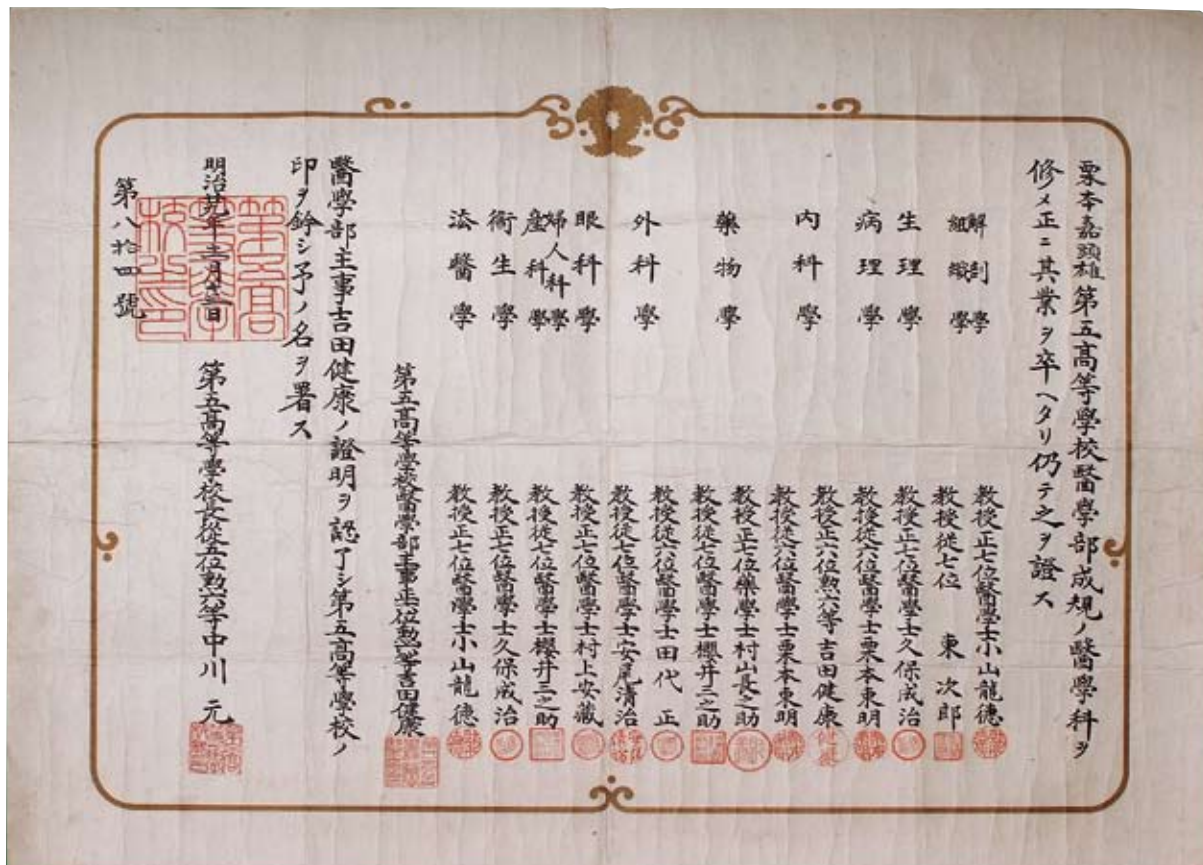 栗本嘉頭雄第五高等學校醫學部成規ノ醫學科ヲ
修メ正ニ其業ヲ卒ヘタリ仍テ之ヲ證ス
解剖學
教授正七位醫學士小山龍德
組織學
教授從七位 東次郎
生理學
教授正七位醫學士久保成治
病理學
教授從六位醫學士栗本東明
內科學
教授正六位勲六等吉田健康
教授從六位醫學士栗本東明
藥物學
教授正七位藥學士村山長之助
教授從七位醫學士櫻井三之助
外科學
教授從六位醫學士田代正
教授從七位醫學士安尾清治
眼科學
教授正七位醫學士村上安藏
婦人科學
產科學
教授從七位醫學士櫻井三之助
衞生學
教授正七位醫學士久保成治
法醫學
教授正七位醫學士小山龍德
第五高等學校醫學部主事正六位勲六等吉田健康
醫學部主事吉田健康ノ證明ヲ認了シ第五高等學校ノ
印ヲ鈐シ予ノ名ヲ署ス
明治廿九年
第五高等學校長從五位勲六等中川元
第八拾四號